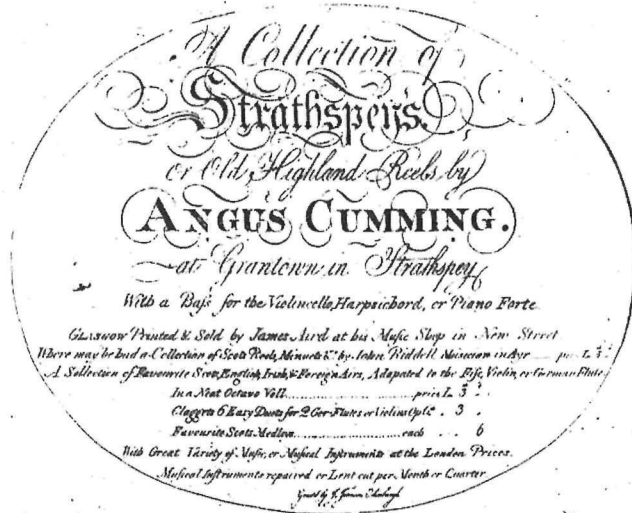 A Collection of
Strathspeys
or Old Highland Reels by
ANGUS CUMMING.
at Grantown in Strathspey
With a Bass for the Violincello, Harpsichord, or Piano Forte
GLASGOW Printed & Sold by James Aird at his Music Shop in New Street
Where may be had a Collection of Scots Reels, Minuets &c. by John Riddell Musician in Ayr
A Sellection of Favourite Scots, English, Irish, & Foreign Airs, Adapated to the Fife, Violin, or German Flute
In a Neat Octavo Voll. price
Claggets 6 Easy Duets for 2 Ger. Flutes or Violins . 3 .
Favourite Scots Medley each . . 6
With Great Variety of Music, or Musical Instruments at the London Prices.
Musical Instruments repaired or Lent out per Month or Quarter
Edinburgh